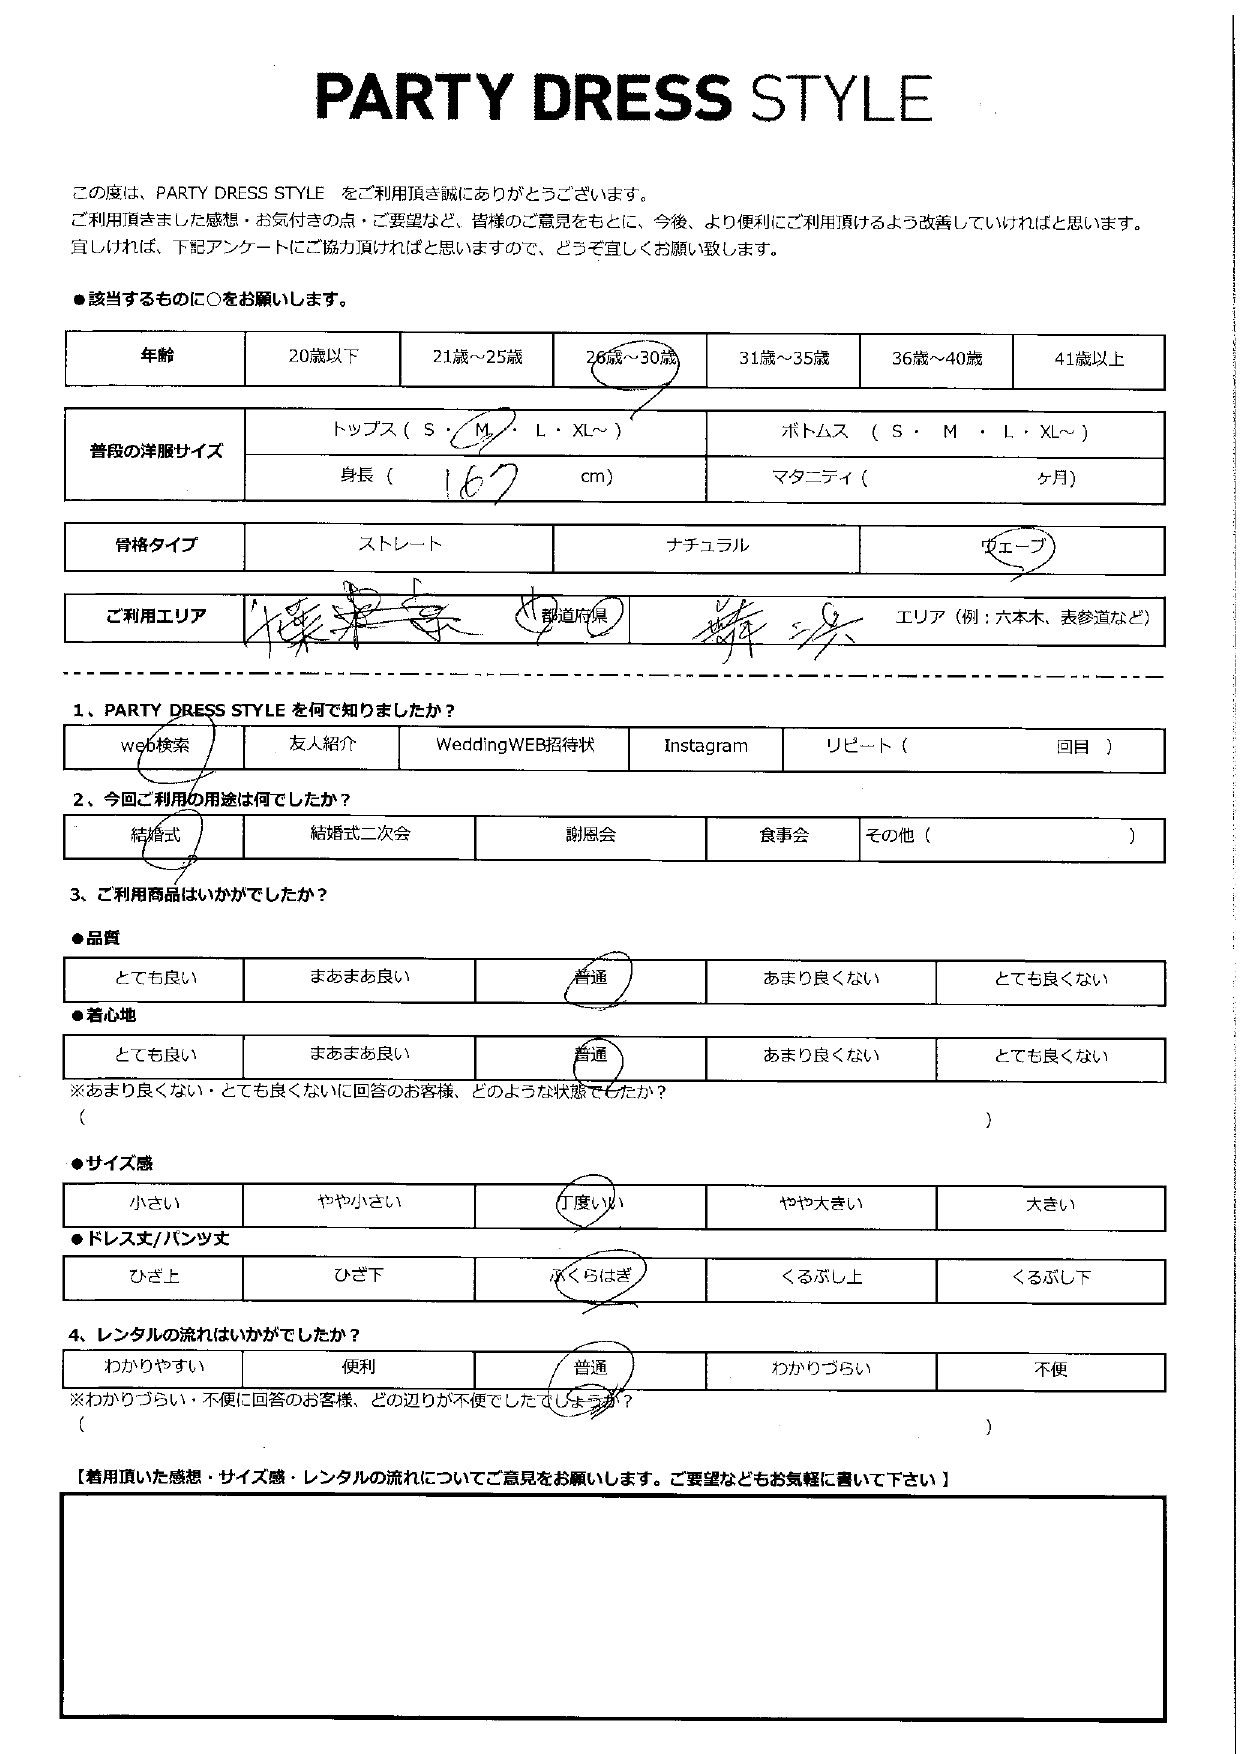 PARTY DRESS STYLE
この度は、PARTY DRESS STYLE をご利用頂き誠にありがとうございます。
ご利用頂きました感想・お気付きの点・ご要望など、皆様のご意見をもとに、今後、より便利にご利用頂けるよう改善していければと思います。
宜しければ、下記アンケートにご協力頂ければと思いますので、どうぞ宜しくお願い致します。
●該当するものに○をお願いします。
年齢 20歳以下 21歳～25歳 26歳～30歳 31歳～35歳 36歳～40歳 41歳以上
普段の洋服サイズ トップス ( S ・ M ・ L ・ XL～ ) ボトムス ( S ・ M ・ L ・ XL～ )
身長 ( 167 cm) マタニティ ( ヶ月)
骨格タイプ ストレート ナチュラル ウェーブ
ご利用エリア 都道府県 エリア（例：六本木、表参道など）
1、PARTY DRESS STYLE を何で知りましたか？
web検索 友人紹介 WeddingWEB招待状 Instagram リピート ( 回目 )
2、今回ご利用の用途は何でしたか？
結婚式 結婚式二次会 謝恩会 食事会 その他 ( )
3、ご利用商品はいかがでしたか？
●品質
とても良い まあまあ良い 普通 あまり良くない とても良くない
●着心地
とても良い まあまあ良い 普通 あまり良くない とても良くない
※あまり良くない・とても良くないに回答のお客様、どのような状態でしたか？
( )
●サイズ感
小さい やや小さい 丁度いい やや大きい 大きい
●ドレス丈/パンツ丈
ひざ上 ひざ下 ふくらはぎ くるぶし上 くるぶし下
4、レンタルの流れはいかがでしたか？
わかりやすい 便利 普通 わかりづらい 不便
※わかりづらい・不便に回答のお客様、どの辺りが不便でしたでしょうか？
( )
【着用頂いた感想・サイズ感・レンタルの流れについてご意見をお願いします。ご要望などもお気軽に書いて下さい】